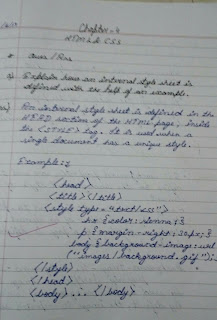 Chapter-4
HTML & CSS
* Ques/Ans
Q) Explain how an internal style sheet is
defined with the help of an example.
Ans) An internal style sheet is defined in the
HEAD section of the HTML page, inside
the <STYLE> tag. It is used when a
single document has a unique style.
Example:-
<head>
<title> </title>
<style type = "text/css">
hr {color: sienna;}
p {margin-right: 20px;}
body {background-image: url
("images/background.gif");}
</style>
</head>
<body> ... </body>